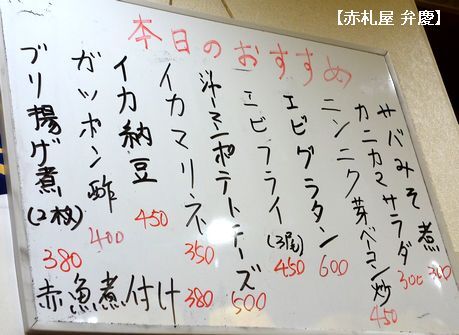 【赤札屋 弁慶】
本日のおすすめ
サバみそ煮 360
カニカマサラダ 300
ニンニク芽ベーコン炒 450
エビグラタン 600
エビフライ(3尾) 450
ジャーマンポテトチーズ 500
イカマリネ 350
イカ納豆 450
ガツポン酢 400
ブリ揚げ煮(2枚) 380
赤魚煮付け 380